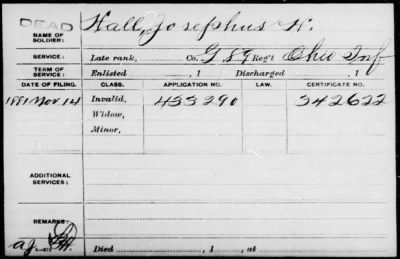 DEAD
NAME OF SOLDIER: Hall, Josephus W.
SERVICE: Late rank, Co. G 89 Reg't Ohio Inf
TERM OF SERVICE: Enlisted , 1 Discharged , 1
DATE OF FILING. CLASS. APPLICATION NO. LAW. CERTIFICATE NO.
1881 Nov 14 Invalid, 433290 342622
Widow,
Minor,
ADDITIONAL SERVICES:
REMARKS:
Died , 1 , at